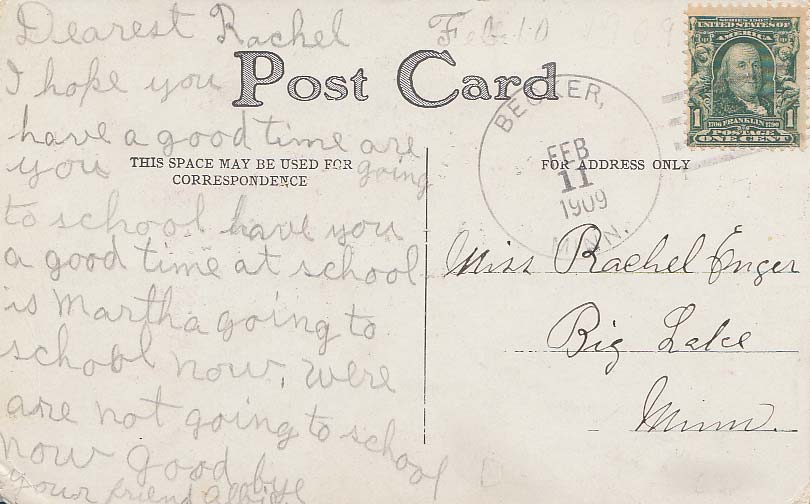 Dearest Rachel
Feb 10 1909
I hope you
have a good time are
you going
to school have you
a good time at school
is Martha going to
school now, were
are not going to school
now good by
your friend
Post Card
THIS SPACE MAY BE USED FOR
CORRESPONDENCE
FOR ADDRESS ONLY
BECKER,
FEB
11
1909
MINN.
SERIES 1902
AMERICA
1 1
1706 FRANKLIN 1790
POSTAGE
ONE CENT
Miss Rachel Enger
Big Lake
Minn.